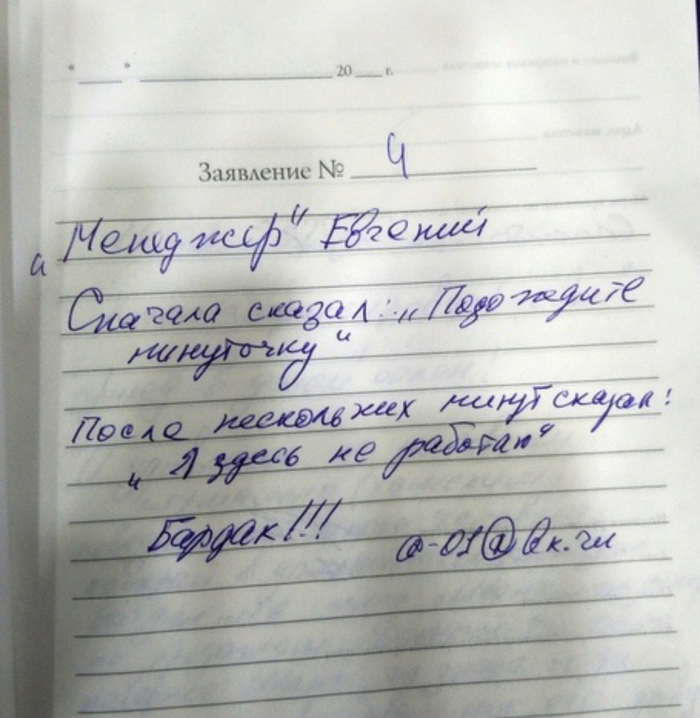 "____" ____________ 20___ г.
Заявление № 4
„Менеджер“ Евгений
Сначала сказал: „Подождите
минуточку“
После нескольких минут сказал:
„Я здесь не работаю“
Бардак!!!